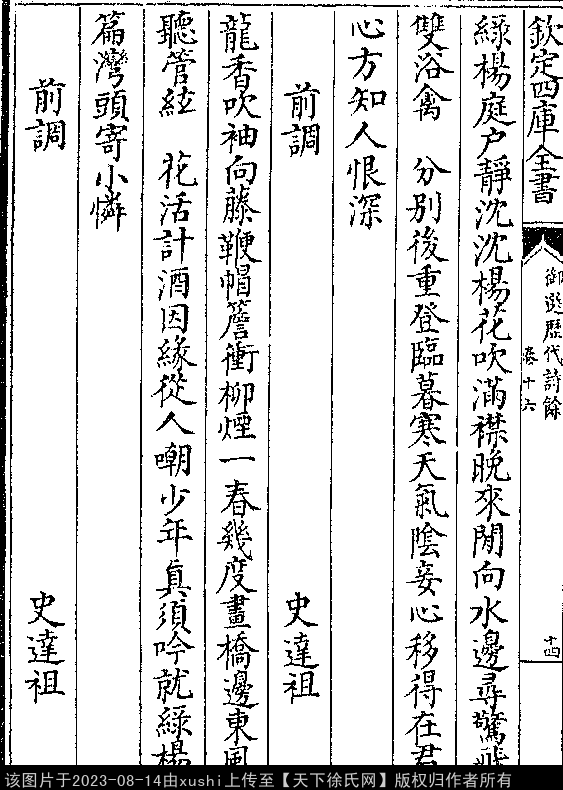 欽定四庫全書
御選歷代詩餘
卷十六
十四
綠楊庭户靜沈沈楊花吹滿襟晚來閒向水邊尋驚飛
雙浴禽　分别後重登臨暮寒天氣陰妾心移得在君
心方知人恨深
前調　史達祖
龍香吹袖向藤鞭帽簷衝柳煙一春幾度畫橋邊東風
聽管絃　花活計酒因緣從人嘲少年真須吟就綠楊
篇灣頭寄小憐
前調　史達祖
该图片于2023-08-14由xushi上传至【天下徐氏网】版权归作者所有